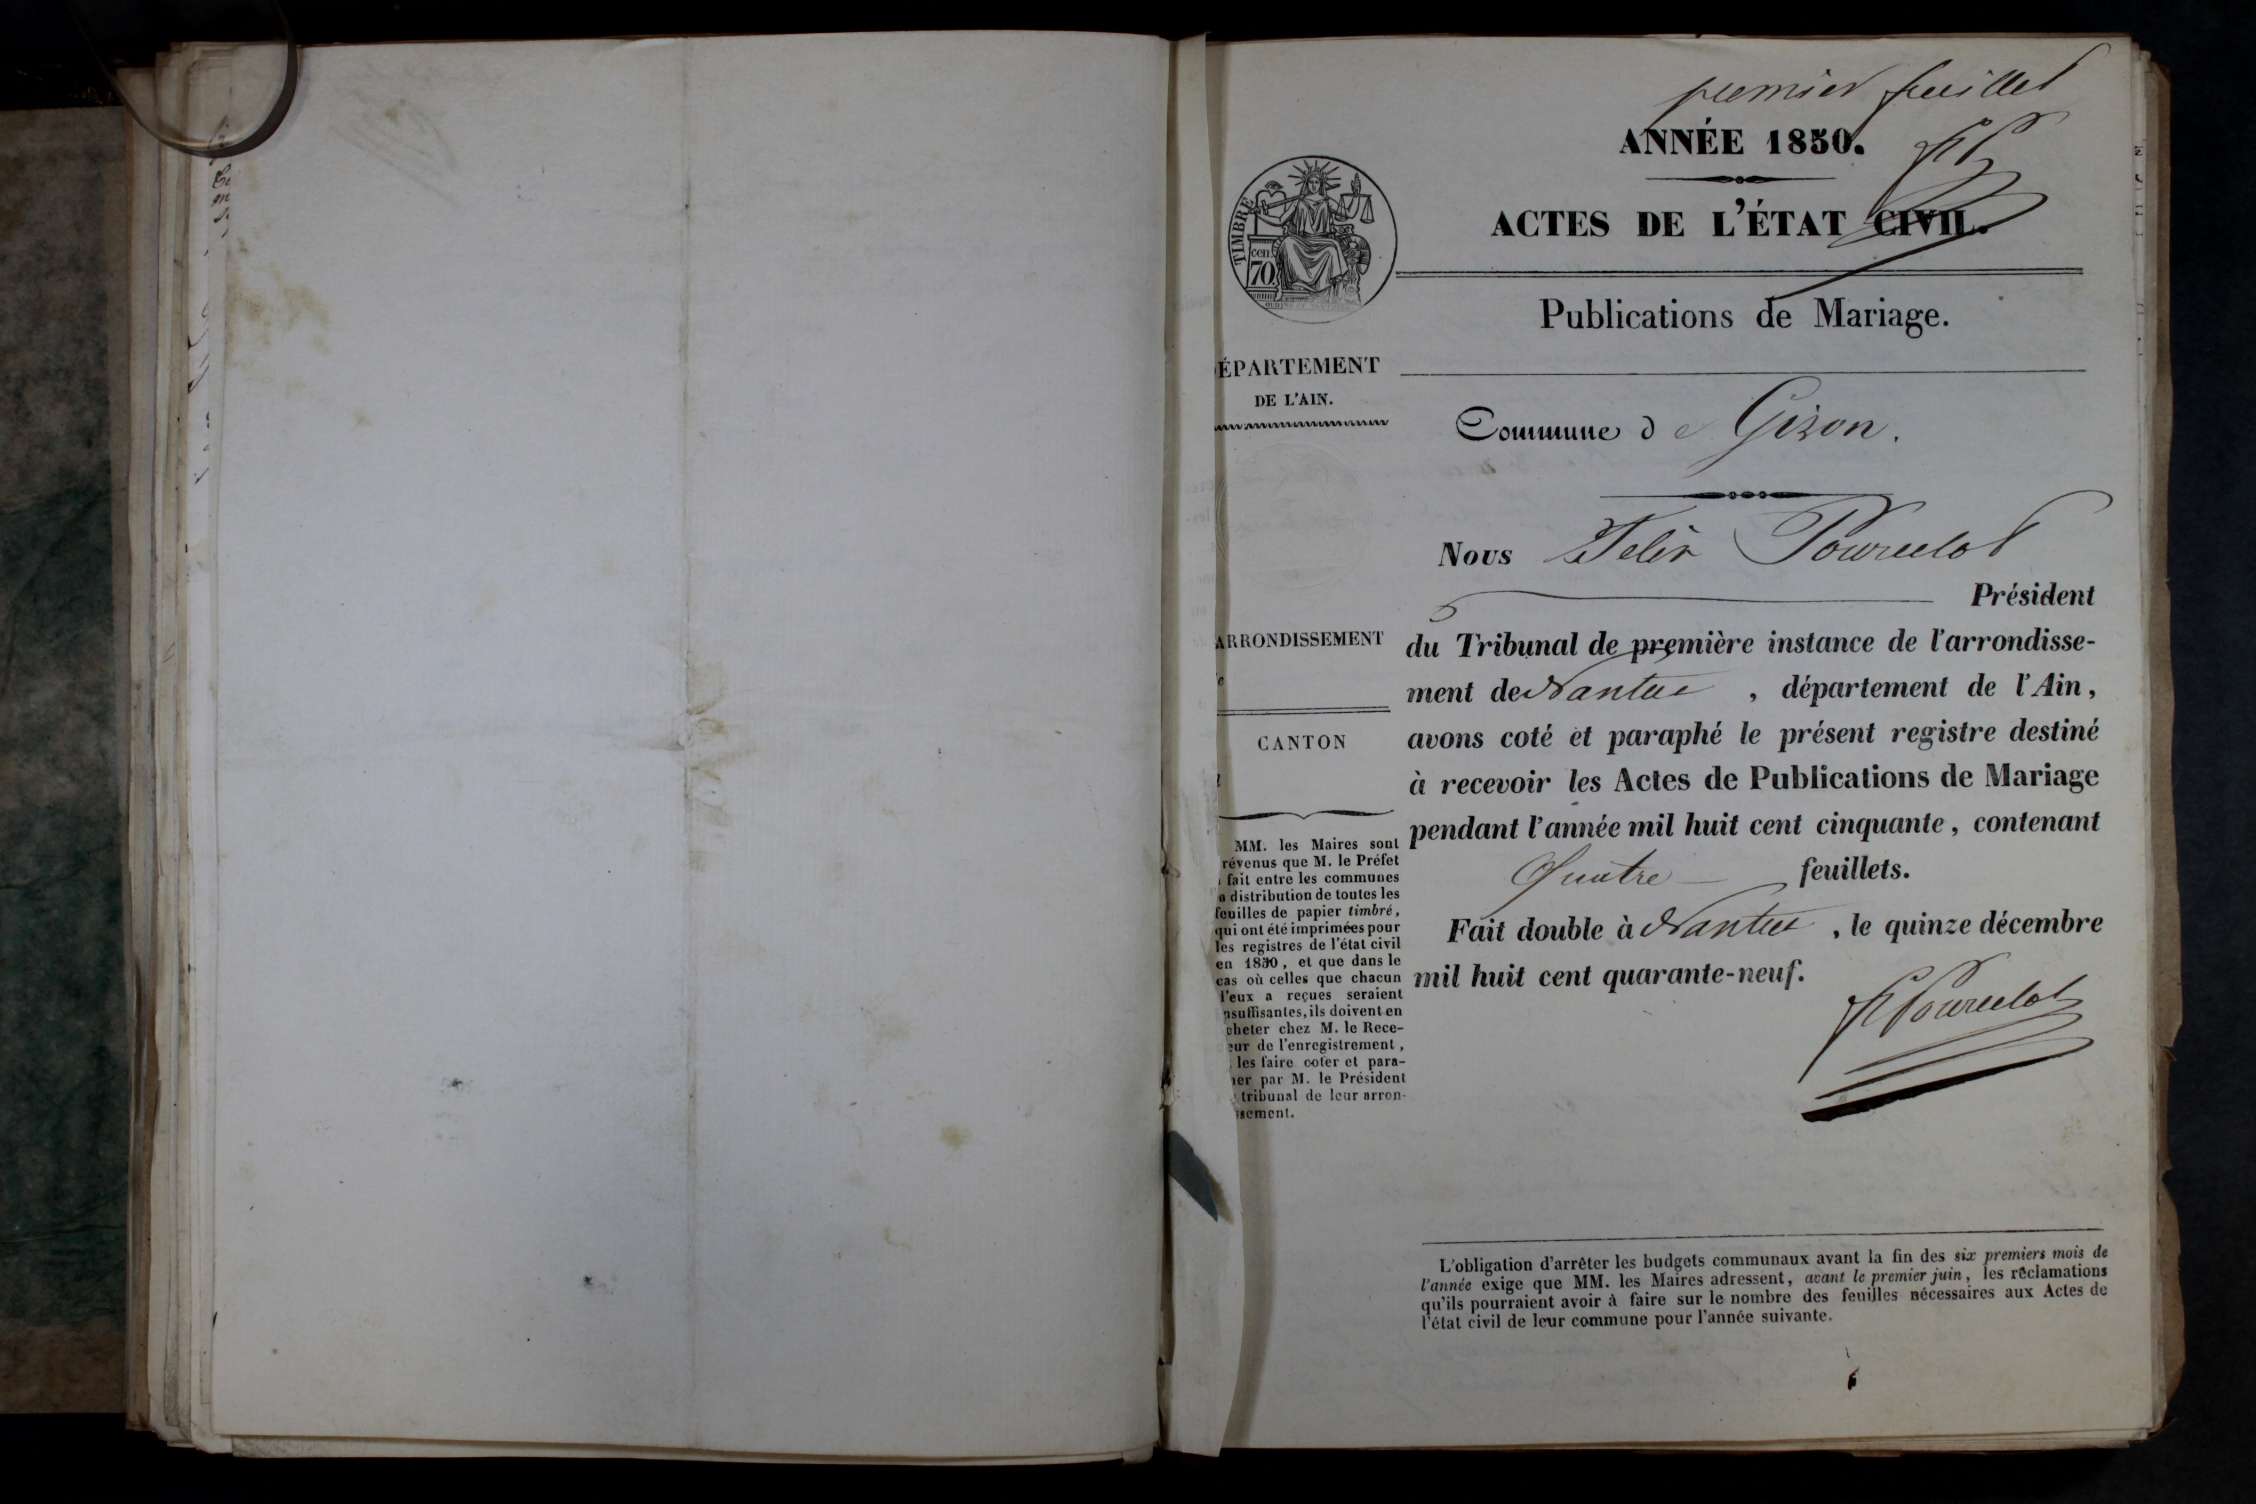 premier feuillet
ANNÉE 1850.
ACTES DE L'ÉTAT CIVIL.
TIMBRE
cen.
70
Publications de Mariage.
ÉPARTEMENT
DE L'AIN.
Commune de Gizon.
Nous Felix Pourcelot
Président
ARRONDISSEMENT
du Tribunal de première instance de l'arrondisse-
ment de Nantua, département de l'Ain,
CANTON
avons coté et paraphé le présent registre destiné
à recevoir les Actes de Publications de Mariage
pendant l'année mil huit cent cinquante, contenant
Quatre feuillets.
Fait double à Nantua, le quinze décembre
mil huit cent quarante-neuf.
F Pourcelot
MM. les Maires sont
révenus que M. le Préfet
fait entre les communes
distribution de toutes les
feuilles de papier timbré,
qui ont été imprimées pour
les registres de l'état civil
en 1850, et que dans le
cas où celles que chacun
d'eux a reçues seraient
nsuffisantes, ils doivent en
cheter chez M. le Rece-
eur de l'enregistrement,
les faire coter et para-
her par M. le Président
tribunal de leur arron-
issement.
L'obligation d'arrêter les budgets communaux avant la fin des six premiers mois de
l'année exige que MM. les Maires adressent, avant le premier juin, les réclamations
qu'ils pourraient avoir à faire sur le nombre des feuilles nécessaires aux Actes de
l'état civil de leur commune pour l'année suivante.